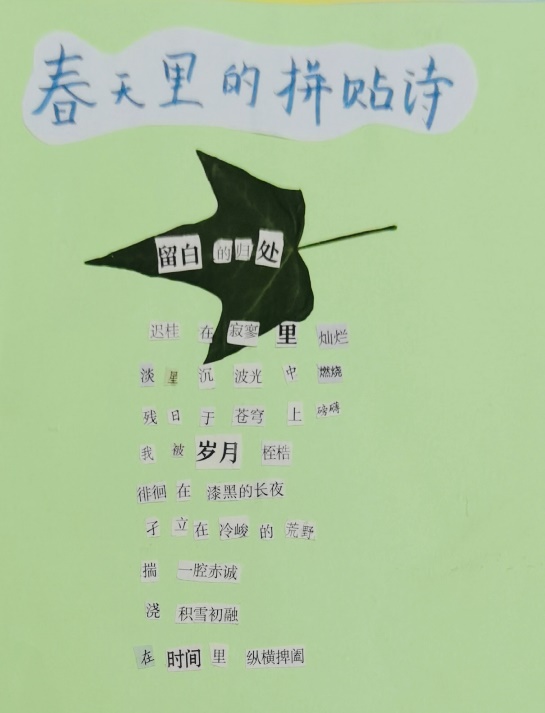 春天里的拼贴诗
留白的归处
迟桂在寂寥里灿烂
淡星沉波光中燃烧
残日于苍穹上磅礴
我被岁月桎梏
徘徊在漆黑的长夜
孑立在冷峻的荒野
揣一腔赤诚
浇积雪初融
在时间里纵横捭阖